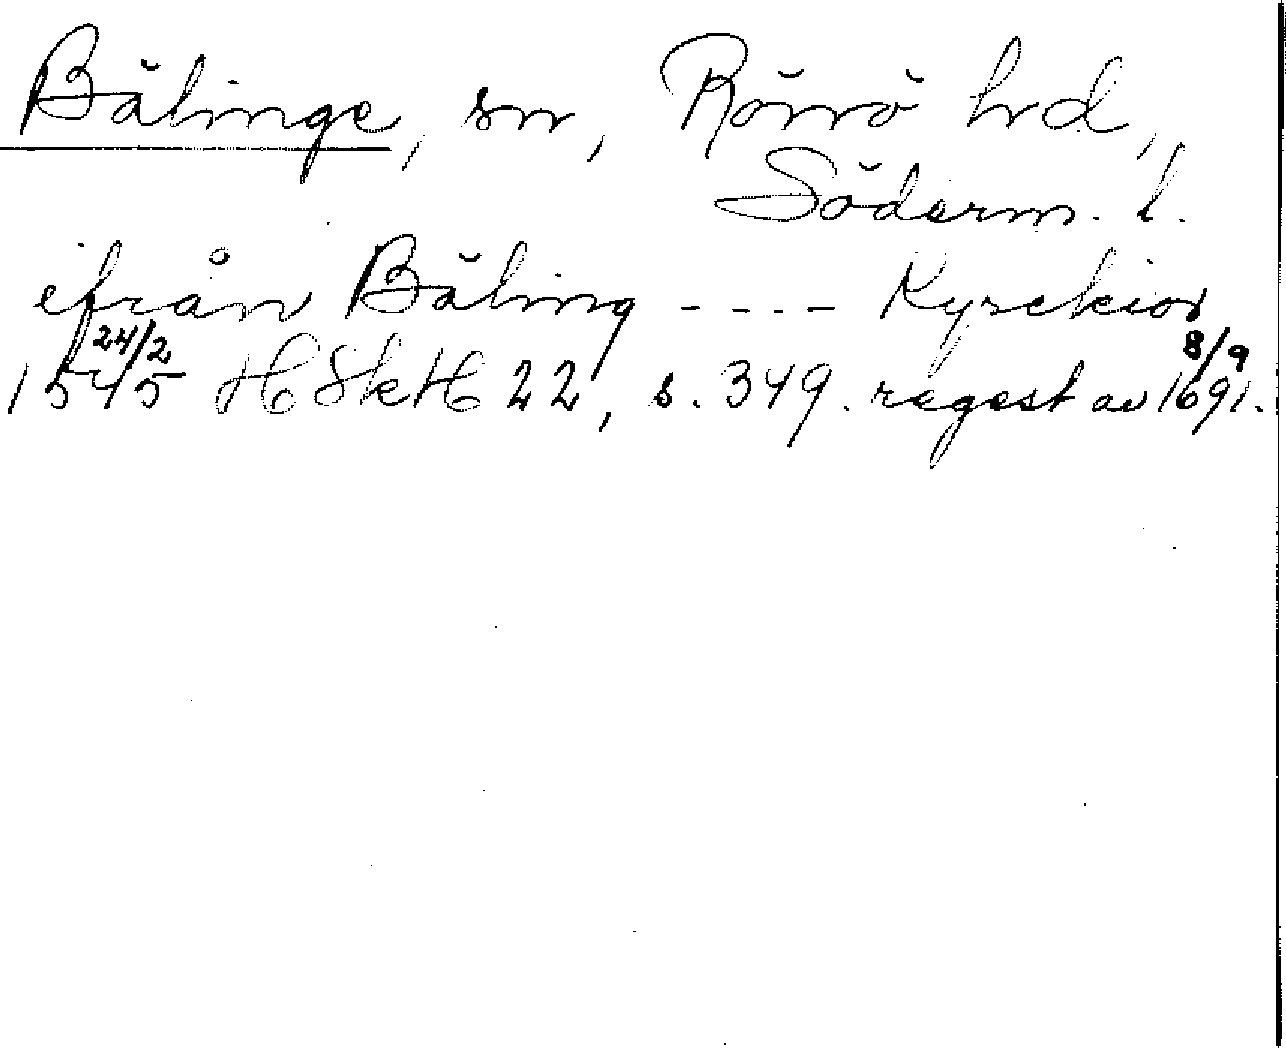 Bälinge, sn, Rönö hd,
Söderm. l.
ifrån Bäling ---- Kyrckior
1545 24/2 HSkH 22, s. 349. regest av 1691 8/9.